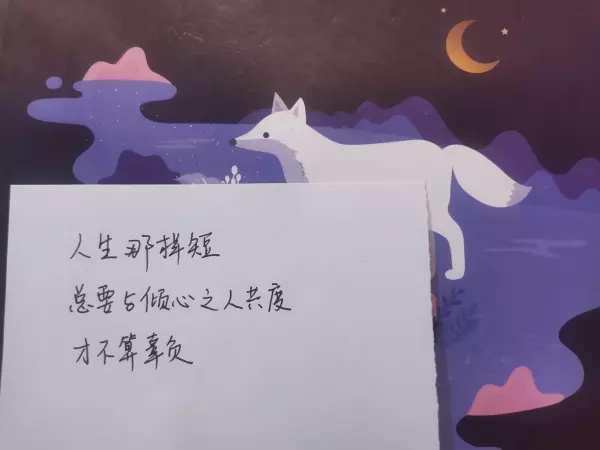 人生那样短
总要与倾心之人共度
才不算辜负